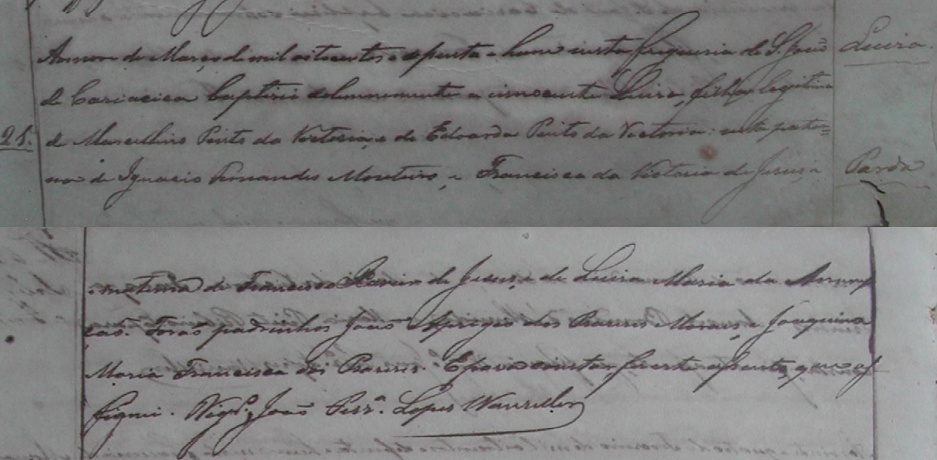 Aos nove de Março de mil oitocentos e sessenta e hum nesta freguesia de S. João
Luisa.
de Cariacica baptisei solemnemente a innocente Luisa, filha legitima
28.
de Marcellino Pinto da Victoria, e de Eduarda Pinto da Victoria: neta pater=
na de Ignacio Fernandes Monteiro, e Francisca da Victoria de Jesus, e
Parda
materna de Francisco Xavier de Jesus, e de Luisa Maria da Annun
cação. Forão padrinhos João Aprigio dos Prazeres Moraes, e Joaquina
Maria Francisca dos Prazeres. E para constar fiz este assento, que as
signei. Vig.º João Ferr.ª Lopes